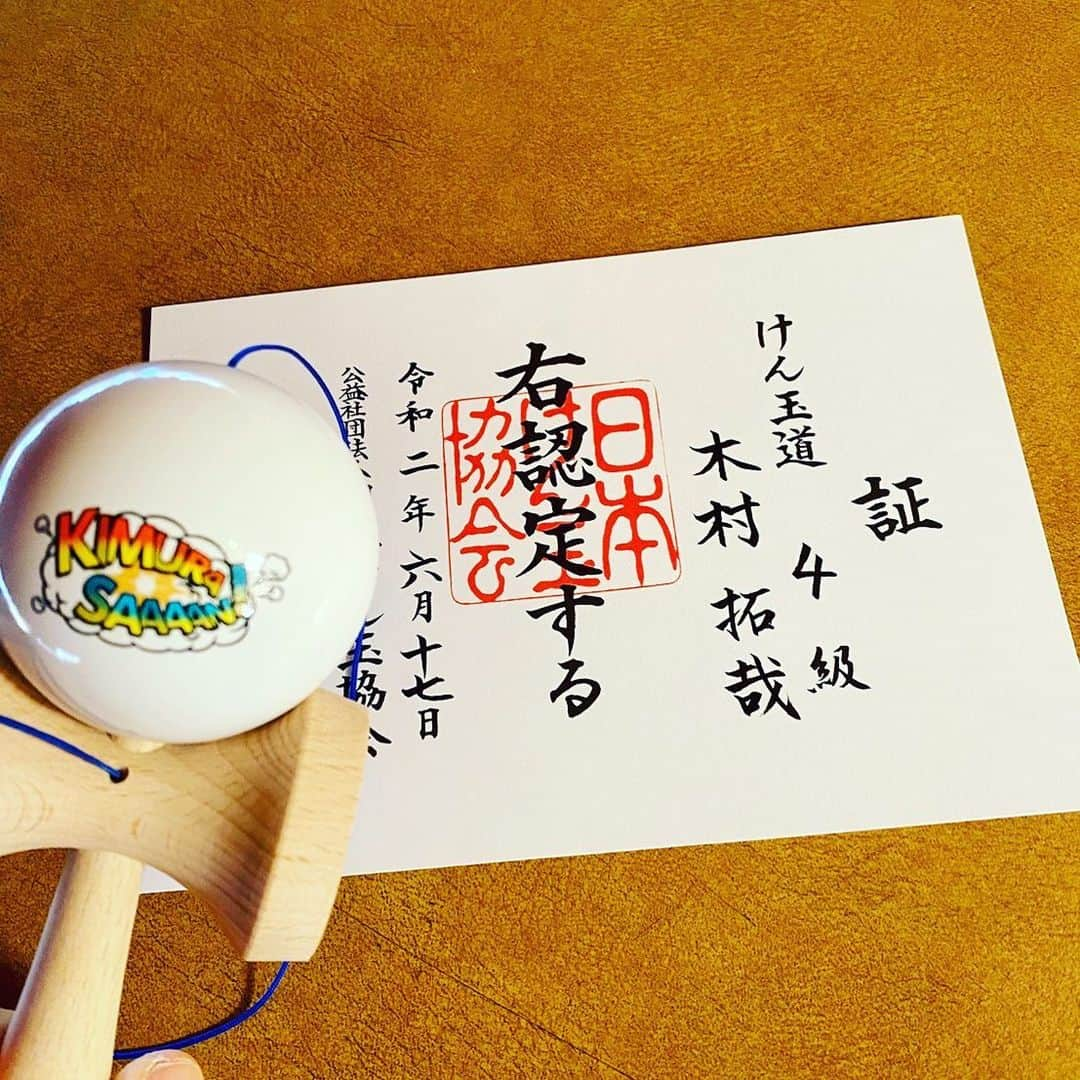 証
けん玉道 4級
木村 拓哉
右認定する
令和二年六月十七日
公益社団法人
玉協会
日本
協会
KIMURA
SAAAAN!